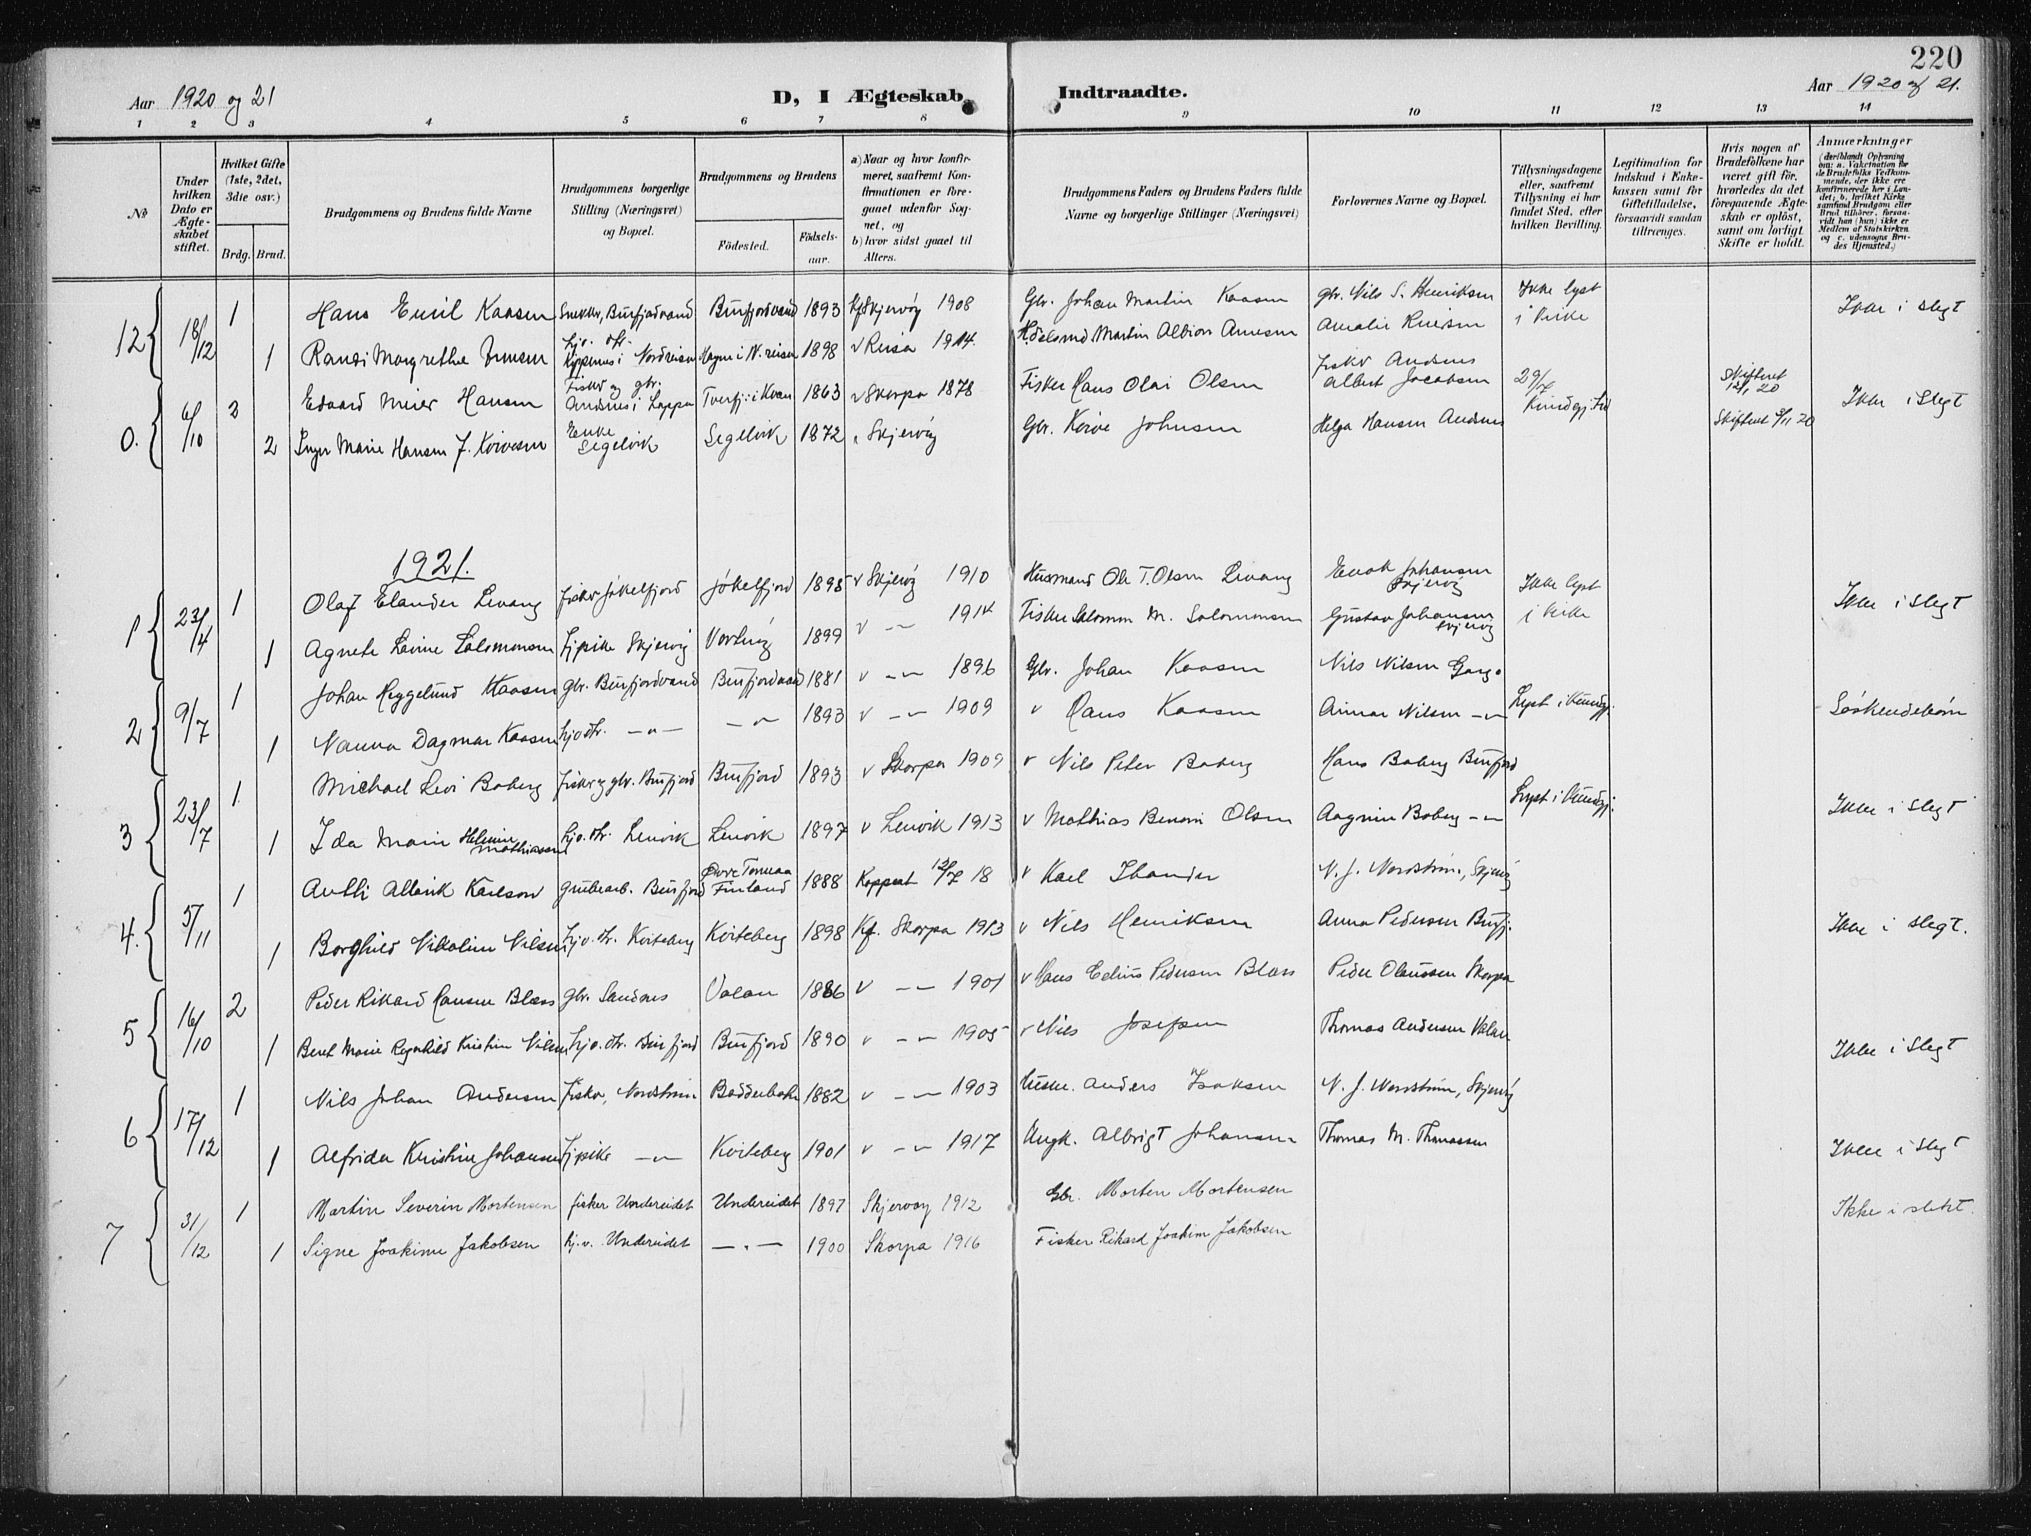 220
Aar 1920 og 21
D, I Ægteskab
Indtraadte.
Aar 1920 og 21.
1 2 3 4 5 6 7 8 9 10 11 12 13 14
№
Under hvilken Dato er Ægteskabet stiftet.
Hvilket Gifte (1ste, 2det, 3die osv.)
Brdg. Brud.
Brudgommens og Brudens fulde Navne
Brudgommens borgerlige Stilling (Næringsvei) og Bopæl.
Brudgommens og Brudens
Födested.
Födselsaar.
a) Naar og hvor konfirmeret, saafremt Konfirmationen er foregaaet udenfor Sognet, og
b) hvor sidst gaaet til Alters.
Brudgommens Faders og Brudens Faders fulde Navne og borgerlige Stillinger (Næringsvei)
Forlovernes Navne og Bopæl.
Tillysningsdagene eller, saafremt Tillysning ei har fundet Sted, efter hvilken Bevilling.
Legitimation for Indskud i Enkekassen samt for Giftetilladelse, forsaavidt saadan tiltrænges.
Hvis nogen af Brudefolkene har været gift för, hvorledes da det foregaaende Ægteskab er oplöst, samt om lovligt Skifte er holdt.
Anmærkninger (deriblandt Oplysning om: a. Vakcination for de Brudefolks Vedkommende, der ikke ere konfirmerede her i Landet; b. hvilket Kirkesamfund Brudgom eller Brud tilhörer, forsaavidt han (hun) ikke er Medlem af Statskirken og c. udensogns Brudes Hjemsted.)
12 18/12 1 Hans Emil Kaasen Snekker, Burfjordvand Burfjordvand 1893 Kf Skjervøy 1908 Gbr. Johan Martin Kaasen gbr. Nils S. Henriksen Ikke lyst i Kirke Ikke i slegt
1 Ragna Margrethe hjv. dtr. i Nordreisa i N. reisen 1898 v Reisa 1914 Martin Albion Amalie
0. 6/10 2 Edvard Meier Hansen Fisker og gbr. Andsnes i Loppa Tverfj. i Kvæn 1863 v Skorpa 1878 Fisker Hans Olai Olsen fisker Andsnes Albert Jacobsen 29/7 Skiftet 12/1 20 Ikke i Slegt
2 Inger Marie Hansen f. Korvesen Enke Segelvik Segelvik 1872 " Skjervøy Gbr. Korve Johnsen Helga Hansen Andsnes Skiftet 9/11 20
1921.
1 23/4 1 Olaf Elander Levang fisker Jøkelfjord Jøkelfjord 1895 v Skjervøy 1910 Husmand Ole T. Olsen Levang Enok Johansen Skjervøy Ikke lyst i Kirke Ikke i slegt
1 Agnete Lovine Salomonsen Tjpike Skjervøy Vorterøy 1899 v -"- 1914 Fisker Salomon M. Salomonsen Gustav Johansen Skjervøy
2 9/7 1 Johan Heggelund Kaasen gbr. Burfjordvand Burfjordvand 1881 v -"- 1896 Gbr. Johan Kaasen Nils Nilsen Lyst i Kvængj. Søskendebørn
1 Nanna Dagmar Kaasen hjo dtr. -"- -"- 1893 v -"- 1909 v Hans Kaasen Nilsen -"-
3 23/7 1 Michael Levi Boberg fisker og gbr. Burfjord Burfjord 1893 v Skorpa 1909 v Nils Peter Boberg Hans Boberg Burfjord Lyst i Kvængj. Ikke i slegt
1 Ida Marie Helmine Mathiassen hjo. dtr. Lenvik Lenvik 1897 v Lenvik 1913 v Mathias Benoni Olsen Boberg -"-
4. 5/11 1 Antti Allarik Karlson grubearb. Burfjord Øvre Torneaa Finland 1888 18 v Karl N. J. Nordstrøm, Skjervøy Ikke i slegt.
1 Borghild Nikoline Nilsen hjo. dtr. Kviteberg Kviteberg 1898 Kf. Skorpa 1913 v Nils Henriksen Anna Pedersen Burfj.
5 16/10 2 Peder Rikard Hansen Blæss gbr. Sandnes Valan 1886 v -"- 1901 v Hans Edius Pedersen Blæss Peder Olaussen Skorpa Ikke i slegt
1 Beret Marie Ragnhild Kristine Nilsen hjo. dtr. Burfjord Burfjord 1890 v -"- 1905 v Nils Josefsen Thomas Andersen Valan
6 17/12 1 Nils Johan Andersen fisker, Nordstrøm Badderbakn 1882 v -"- 1903 Anders Isaksen N. J. Nordstrøm, Skjervøy Ikke i slegt
1 Alfrida Kristine Johansen Tjpike -"- Kviteberg 1901 v -"- 1917 Ungk. Albrigt Johansen Thomas M. Thomassen
7 31/12 1 Martin Severin Mortensen fisker Undereidet Undereidet 1897 Skjervøy 1912 Gbr. Morten Mortensen Ikke i slekt.
1 Signe Joakime Jakobsen hj.v. Undereidet -"- 1900 Skorpa 1916 Fisker Rikard Joakim Jakobsen